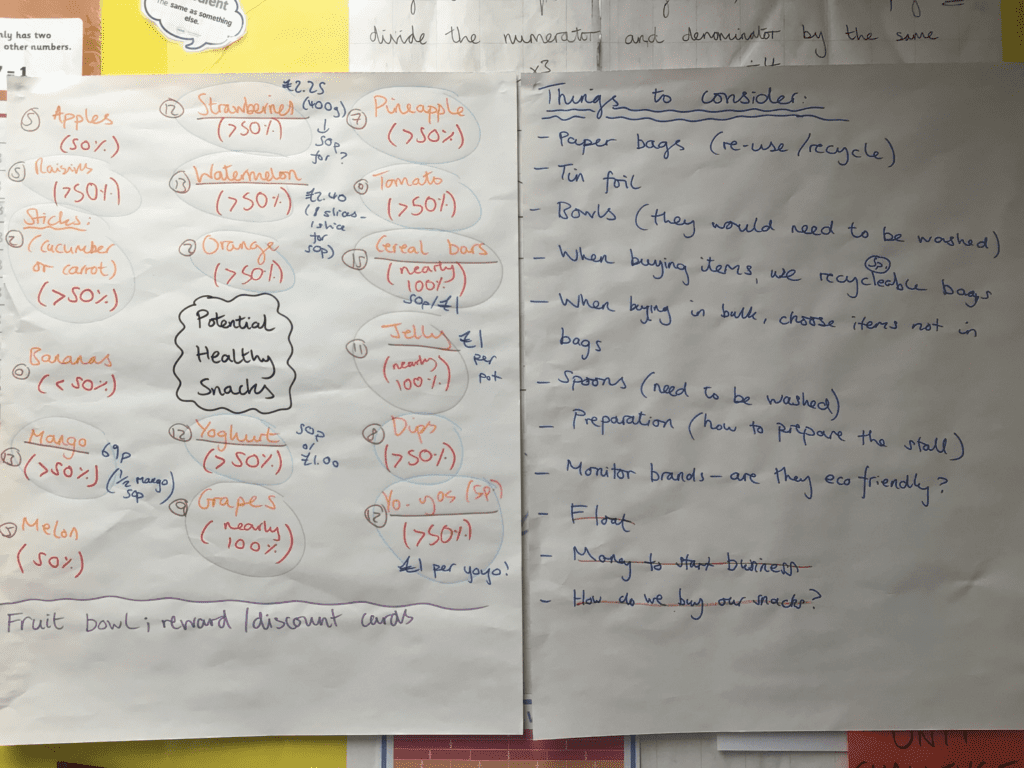 The same as something
else.
nly has two
other numbers.
divide the numerator and denominator by the same
x3
⑤ Apples
(50%)
⑤ Raisins
(>50%)
Sticks:
② (cucumber
or carrot)
(>50%)
⓪ Bananas
(<50%)
Mango 69p
(>50%) (1/2 mango
50p)
Melon
(50%)
⑫ Strawberries
(>50%)
£2.25
(400g)
↓
50p
for ?
⑬ Watermelon
(>50%)
£2.40
1 slice
for
50p)
⑦ Orange
(>50%)
Potential
Healthy
Snacks
⑫ Yoghurt
(>50%)
50p
or
£1.00
⑨ Grapes
(nearly
100%)
⑦ Pineapple
(>50%)
⑥ Tomato
(>50%)
⑮ Cereal bars
(nearly
100%)
50p/£1
⑪ Jelly
(nearly
100%)
£1
per
pot
⑧ Dips
(>50%)
⑫ Yo-yos (sp?)
(>50%)
£1 per yoyo!
Fruit bowl; reward / discount cards
Things to consider:
- Paper bags (re-use/recycle)
- Tin foil
- Bowls (they would need to be washed)
- When buying items, we recycleable bags
5p
- When buying in bulk, choose items not in
bags
- Spoons (need to be washed)
- Preparation (how to prepare the stall)
- Monitor brands - are they eco friendly?
- Float
- Money to start business
- How do we buy our snacks?
UNIT